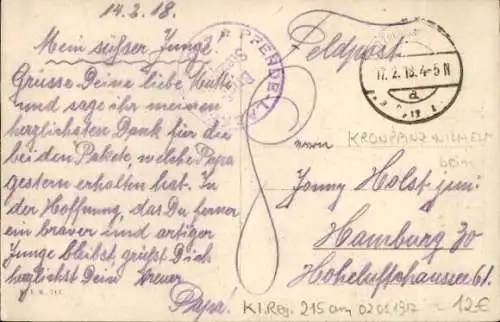 14.2.18.
Mein süsser Junge!
Grüsse Deine liebe Mutti
und sage ihr meinen
herzlichsten Dank für die
beiden Pakete, welche Papa
gestern erhalten hat. In
der Hoffnung, das Du ferner
ein braver und artiger
Junge bleibst grüßt Dich
herzlichst Dein treuer
Papa!
PFERDE-LAZ
Feldpost.
17.2.18.4-5N
a
Herrn
KRONPRINZ WILHELM
beim
Jonny Holst jun:
Hamburg 30
Hoheluftchaussee 61.
K.I. Reg. 215 am 02051912
12€